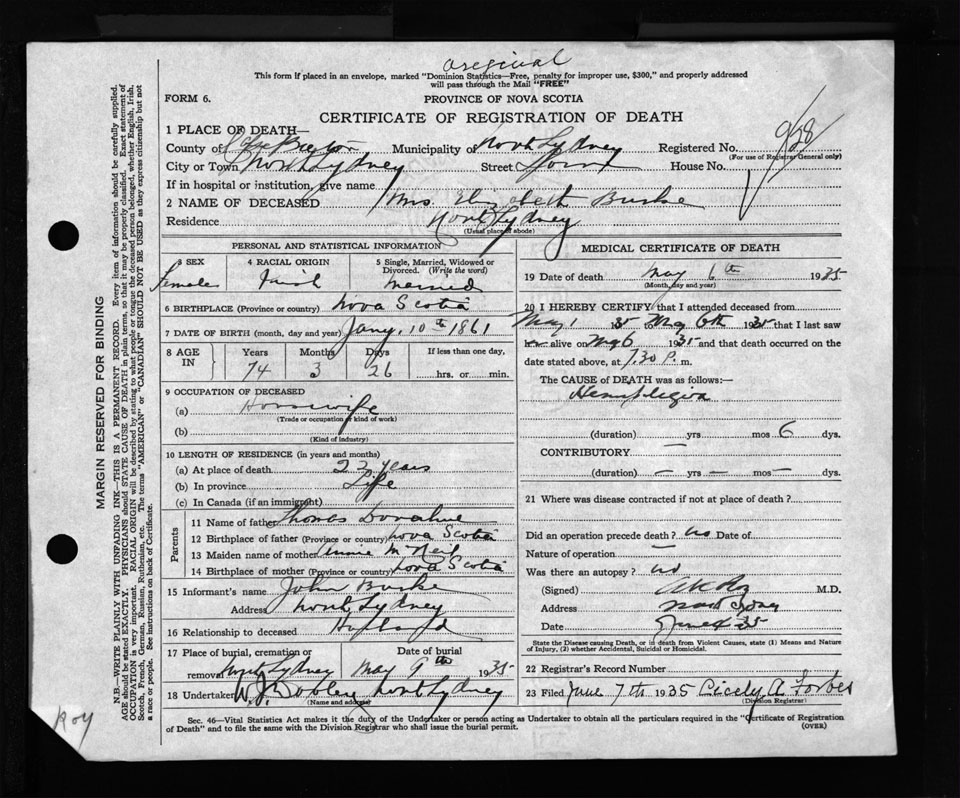 Original
This form if placed in an envelope, marked "Dominion Statistics—Free, penalty for improper use, $300," and properly addressed
will pass through the Mail "FREE"
FORM 6.
PROVINCE OF NOVA SCOTIA
CERTIFICATE OF REGISTRATION OF DEATH
1 PLACE OF DEATH—
County of Cape Breton Municipality of North Sydney Registered No. 958
(For use of Registrar General only)
City or Town North Sydney Street House No.
If in hospital or institution, give name
2 NAME OF DECEASED Mrs. Elizabeth Burke
Residence North Sydney
(Usual place of abode)
PERSONAL AND STATISTICAL INFORMATION
3 SEX Female
4 RACIAL ORIGIN Irish
5 Single, Married, Widowed or Divorced. (Write the word) married
6 BIRTHPLACE (Province or country) Nova Scotia
7 DATE OF BIRTH (month, day and year) Jany. 10th 1861
8 AGE IN Years Months Days If less than one day,
74 3 26 hrs. or min.
9 OCCUPATION OF DECEASED
(a) Housewife
(Trade or occupation or kind of work)
(b)
(Kind of industry)
10 LENGTH OF RESIDENCE (in years and months)
(a) At place of death 22 years
(b) In province Life
(c) In Canada (if an immigrant)
Parents
11 Name of father Thomas Donahue
12 Birthplace of father (Province or country) Nova Scotia
13 Maiden name of mother Annie McNeil
14 Birthplace of mother (Province or country) Nova Scotia
15 Informant's name John Burke
Address North Sydney
16 Relationship to deceased Husband
17 Place of burial, cremation or removal North Sydney Date of burial May 9th 1935
18 Undertaker W J Dooley North Sydney
(Name and address)
MEDICAL CERTIFICATE OF DEATH
19 Date of death May 6th 1935
(Month, day and year)
20 I HEREBY CERTIFY that I attended deceased from
May 1 35 to May 6th 1935 that I last saw
her alive on May 6 1935 and that death occurred on the
date stated above, at 7.30 P. m.
The CAUSE of DEATH was as follows:—
Hemiplegia
(duration) — yrs mos 6 dys.
CONTRIBUTORY
(duration) — yrs — mos — dys.
21 Where was disease contracted if not at place of death?
Did an operation precede death? no Date of
Nature of operation —
Was there an autopsy? no
(Signed) M.D.
Address North Sydney
Date 35
State the Disease causing Death, or in death from Violent Causes, state (1) Means and Nature
of Injury, (2) whether Accidental, Suicidal or Homicidal.
22 Registrar's Record Number
23 Filed June 7th 1935 Cicely A. Forbes
(Division Registrar)
Sec. 46—Vital Statistics Act makes it the duty of the Undertaker or person acting as Undertaker to obtain all the particulars required in the "Certificate of Registration
of Death" and to file the same with the Division Registrar who shall issue the burial permit.
(OVER)
MARGIN RESERVED FOR BINDING
N.B.—WRITE PLAINLY WITH UNFADING INK—THIS IS A PERMANENT RECORD. Every item of information should be carefully supplied.
AGE should be stated EXACTLY. PHYSICIANS should STATE CAUSE OF DEATH in plain terms, so that it may be properly classified. Exact statement of
OCCUPATION is very important. RACIAL ORIGIN will be described by stating to what people or tongue the deceased person belonged, whether English, Irish,
Scotch, French, German, Russian, Ruthenian, etc. The terms "AMERICAN" or "CANADIAN" SHOULD NOT BE USED as they express citizenship but not
a race or people. See instructions on back of Certificate.
Roy